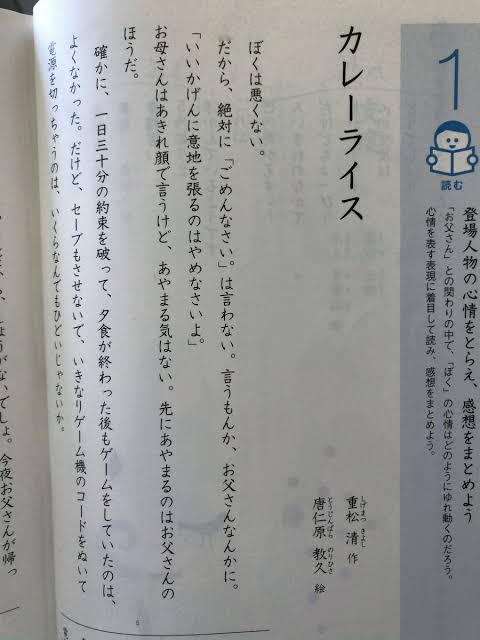 1
読む
登場人物の心情をとらえ、感想をまとめよう
「お父さん」との関わりの中で、「ぼく」の心情はどのようにゆれ動くのだろう。
心情を表す表現に着目して読み、感想をまとめよう。
カレーライス
重松 清 作
しげまつ きよし
唐仁原 教久 絵
とうじんばら のりひさ
ぼくは悪くない。
だから、絶対に「ごめんなさい。」は言わない。言うもんか、お父さんなんかに。
「いいかげんに意地を張るのはやめなさいよ。」
お母さんはあきれ顔で言うけど、あやまる気はない。先にあやまるのはお父さんの
ほうだ。
確かに、一日三十分の約束を破って、夕食が終わった後もゲームをしていたのは、
よくなかった。だけど、セーブもさせないで、いきなりゲーム機のコードをぬいて
電源を切っちゃうのは、いくらなんでもひどいじゃないか。
5
でしょ。今夜お父さんが帰っ